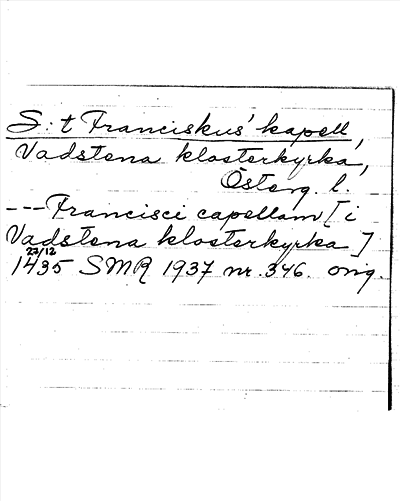 S:t Franciskus' kapell,
Vadstena klosterkyrka,
Österg. l.
---Francisci capellam [i
Vadstena klosterkyrka]
22/12
1435 SMR 1937 nr. 346. orig.